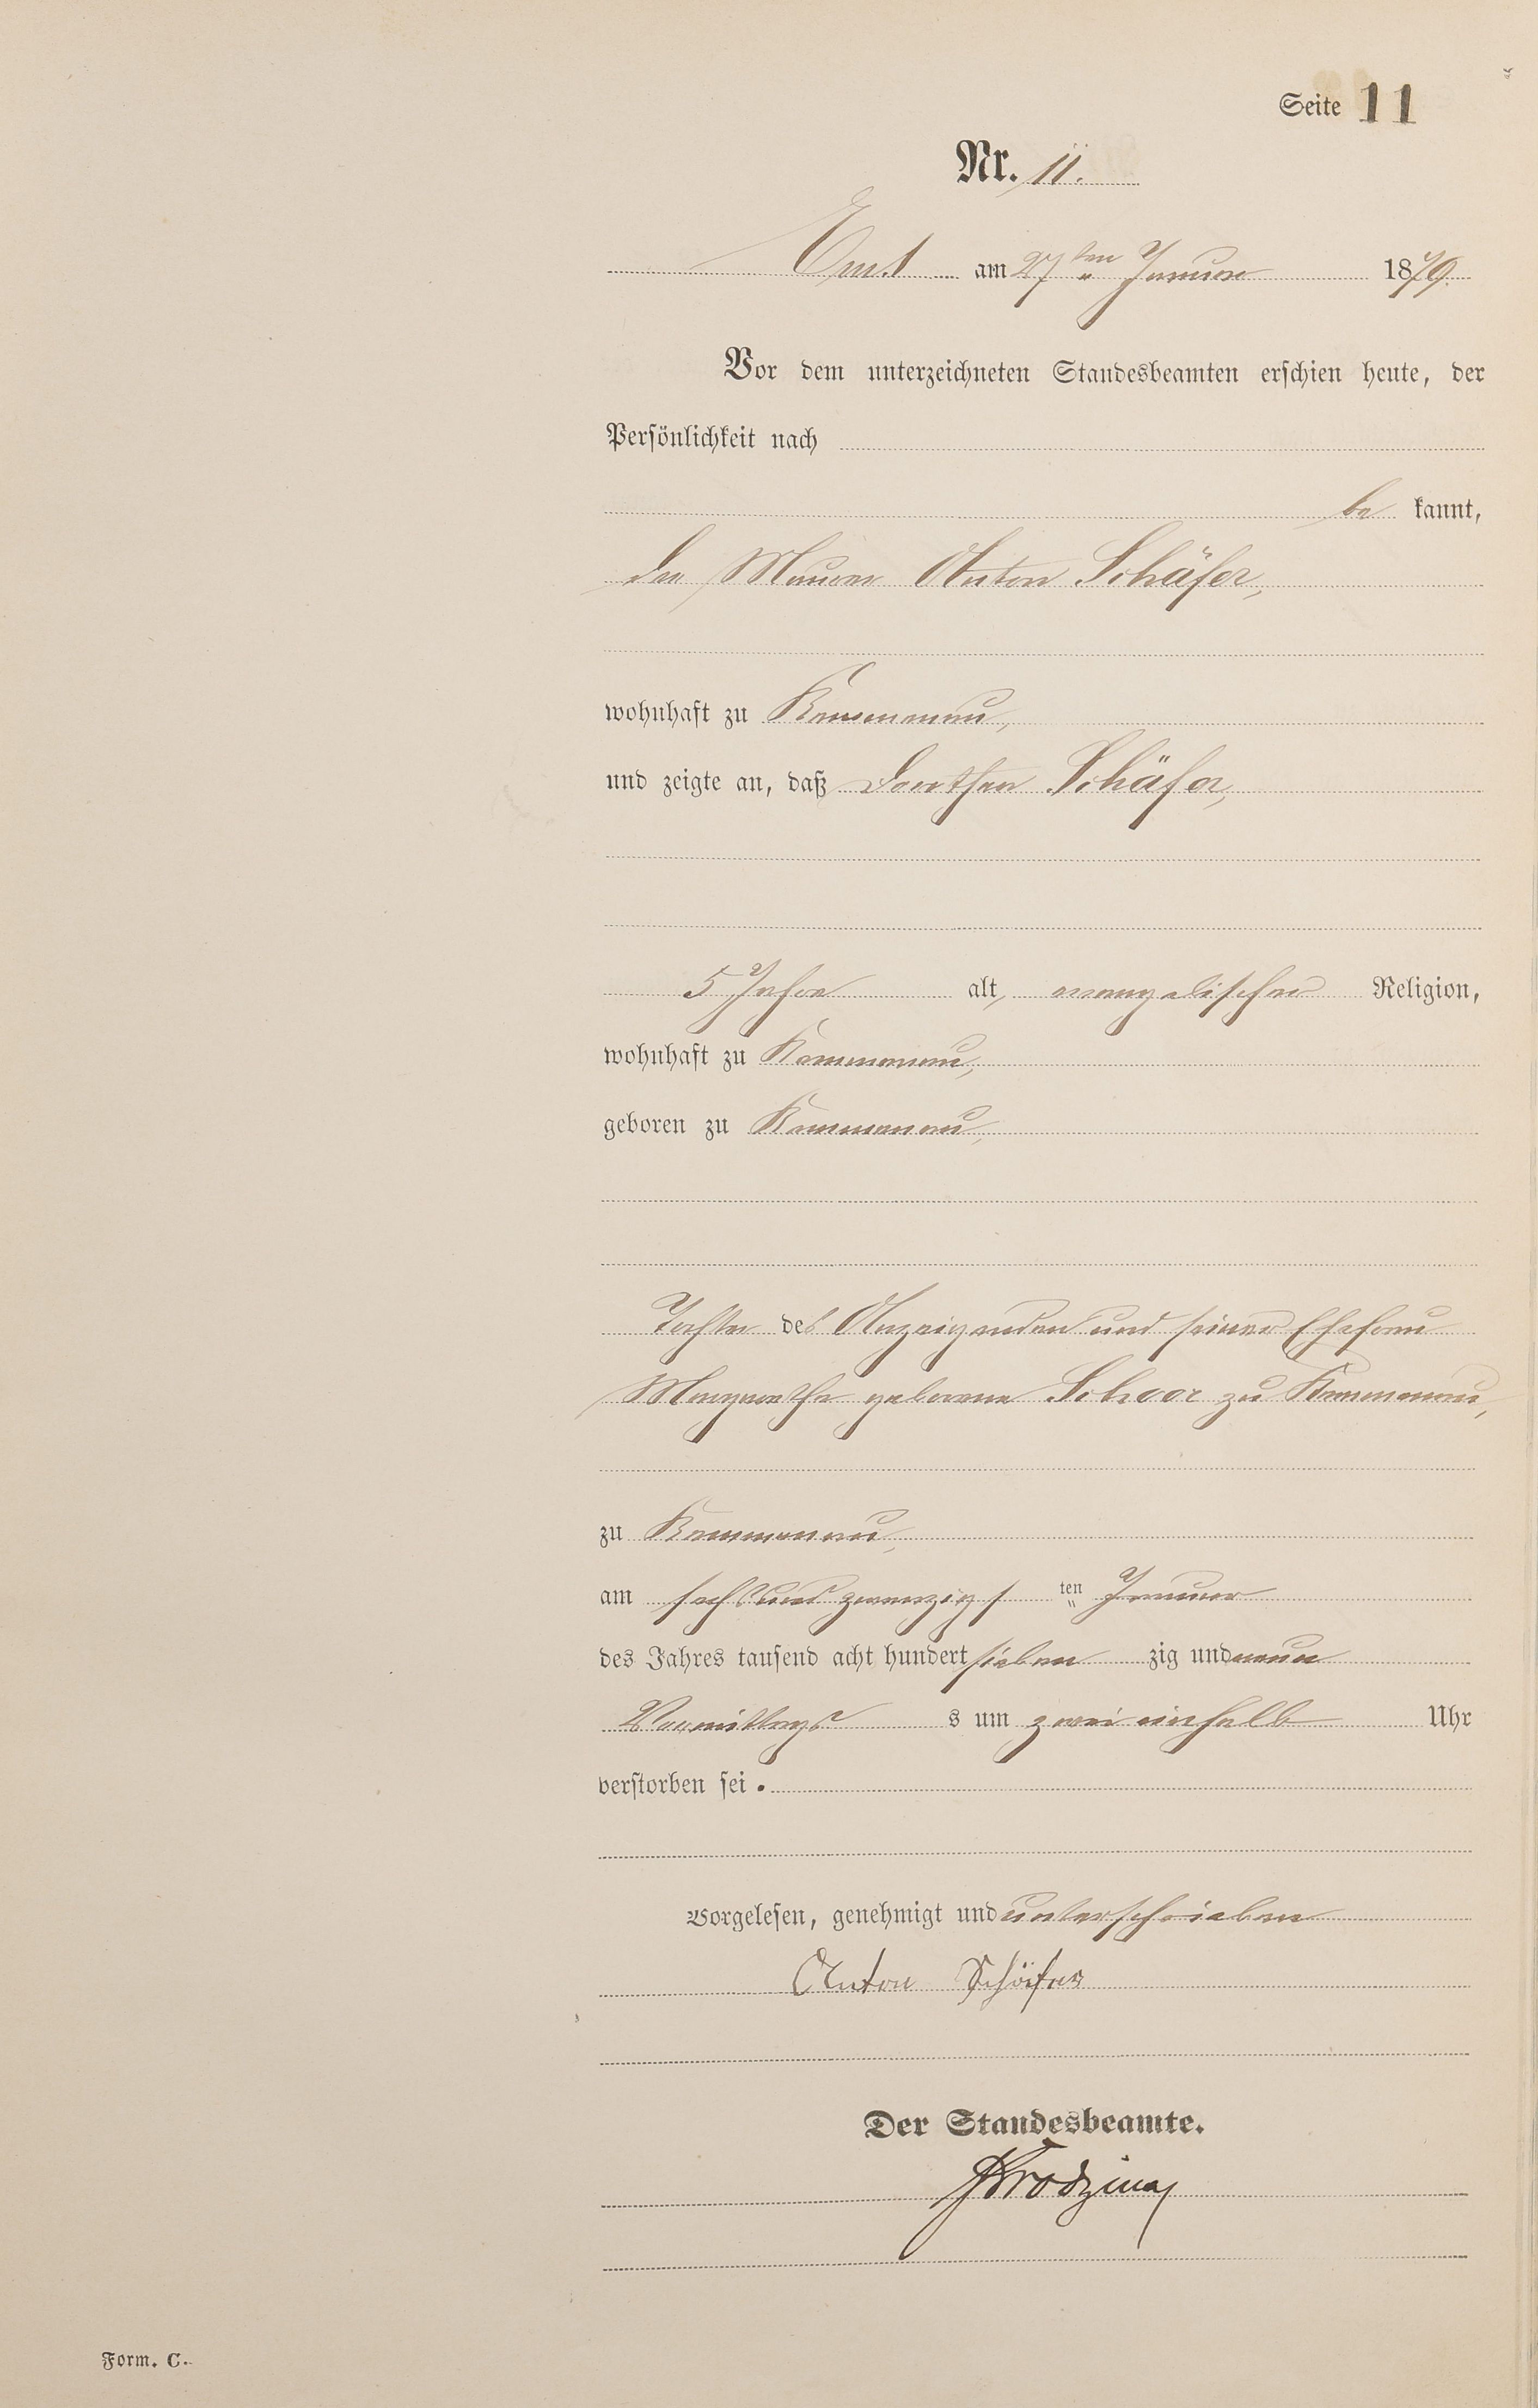 Seite 11
Nr. 11.
Ems am 27ten Januar 1879.
Vor dem unterzeichneten Standesbeamten erschien heute, der
Persönlichkeit nach
be kannt,
der Maurer Anton Schäfer,
wohnhaft zu Kemmenau,
und zeigte an, daß Dorothea Schäfer,
5 Jahre alt, evangelischer Religion,
wohnhaft zu Kemmenau,
geboren zu Kemmenau,
Tochter des Anzeigenden und seiner Ehefrau
Margarethe geborene Schoor zu Kemmenau,
zu Kemmenau,
am sechsundzwanzigs ten Januar
des Jahres tausend acht hundert sieben zig und neun
Vormittags s um zwei einhalb Uhr
verstorben sei.
Vorgelesen, genehmigt und unterschrieben
Anton Schäfer
Der Standesbeamte.
Form. C.